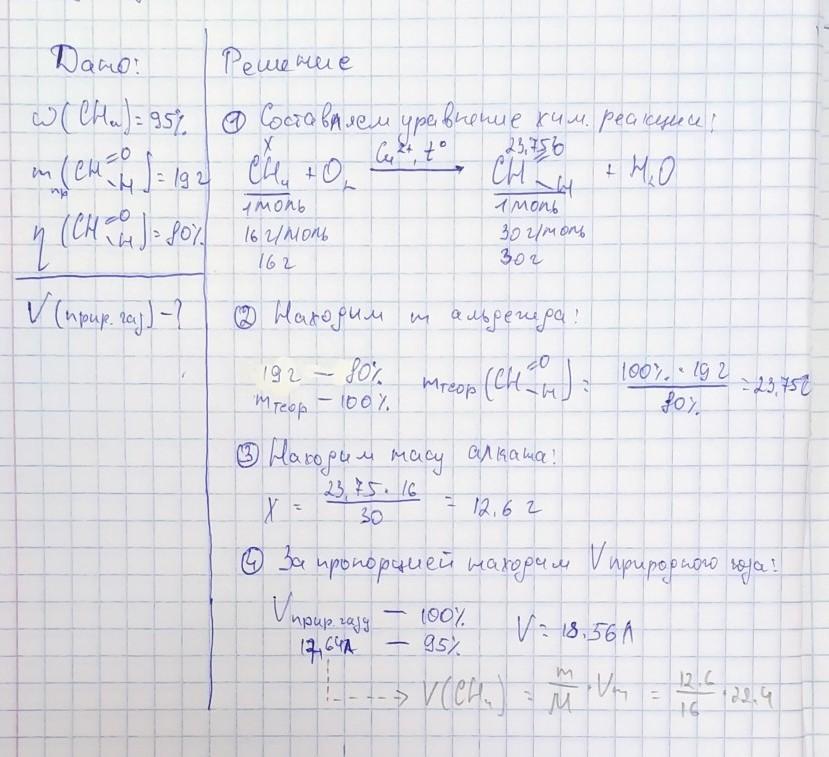 Дано:
ω(CH₄) = 95%
mпр(CH=O-H) = 19 г
η(CH=O-H) = 80%
V(прир. газ) - ?
Решение
① Составляем уравнение хим. реакции:
x 23,75г
CH₄ + O₂ Cu²⁺, t° → CH=O-H + H₂O
1 моль 1 моль
16 г/моль 30 г/моль
16 г 30 г
② Находим m альдегида:
19 г — 80%
mтеор — 100%
mтеор(CH=O-H) = 100% · 19 г / 80% = 23,75г
③ Находим масу алкана:
X = 23,75 · 16 / 30 = 12,6 г
④ За пропорцией находим V природного газа:
Vприр. газу — 100%
17,64л — 95%
V = 18,56л
V(CH₄) = m/M · Vm = 12,6/16 · 22,4